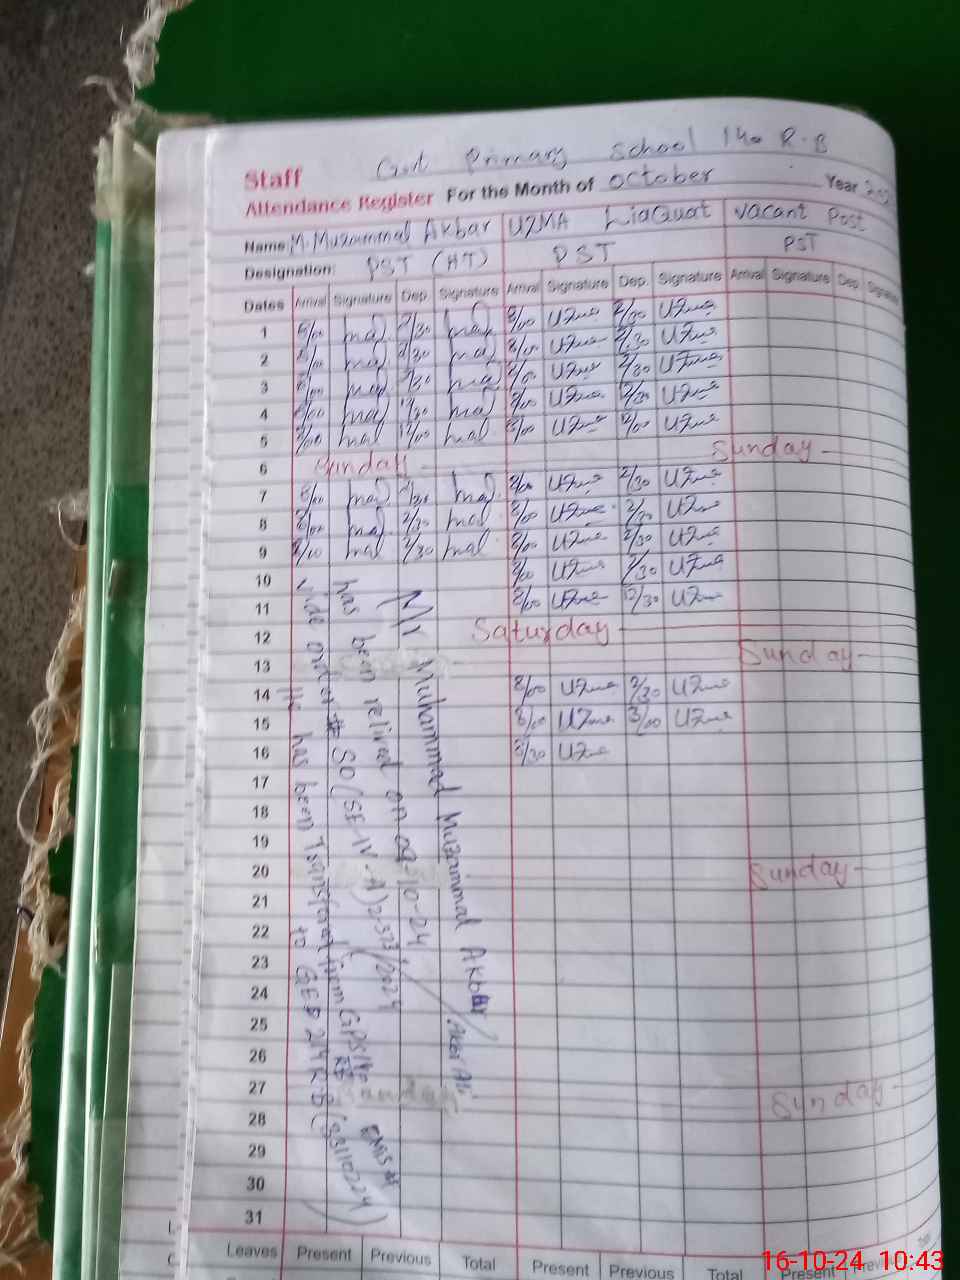 Govt Primary School 140 R-B
Staff
Attendance Register For the Month of October Year
Name M. Muzammal Akbar UZMA LiaQuat Vacant Post
Designation: PST (HT) PST PST
Dates Arrival Signature Dep. Signature Arrival Signature Dep. Signature Arrival Signature Dep Signature
1 8/00 2/30 8/00 Uzma 2/30 Uzma
2 8/00 2/30 8/00 Uzma 2/30 Uzma
3 8/00 2/30 8/00 Uzma 2/30 Uzma
4 8/00 12/30 8/00 Uzma 12/30 Uzma
5 8/00 12/00 8/00 Uzma 12/00 Uzma
6 Sunday Sunday
7 8/00 2/30 8/00 Uzma 2/30 Uzma
8 8/00 2/30 8/00 Uzma 2/30 Uzma
9 8/00 2/30 8/00 Uzma 2/30 Uzma
10 8/00 Uzma 2/30 Uzma
11 8/00 Uzma 12/30 Uzma
12 Saturday
13 Sunday
14 8/00 Uzma 2/30 Uzma
15 8/00 Uzma 3/00 Uzma
16 8/30 Uzma
17
18
19
20 Sunday
21
22
23
24
25
26
27 Sunday
28
29
30
31
Mr Muhammad Muzammal Akbar
has been retired on 09-10-24
vide order SO(SE-IV-A)2-323/2024
He has been Transferred from GPS 140 RB
to GES 214 RB (33110224)
Leaves Present Previous Total Present Previous Total Present Previous
16-10-24 10:43